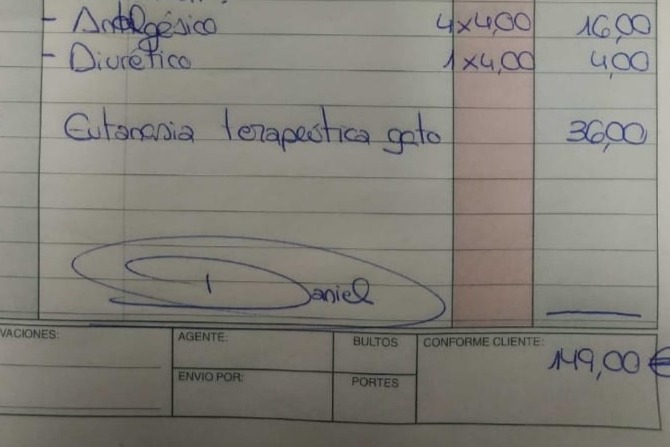 - Analgésico 4x4,00 16,00
- Diurético 1x4,00 4,00
Eutanasia terapeútica gato 36,00
Daniel
VACIONES:
AGENTE:
BULTOS
CONFORME CLIENTE:
149,00 €
ENVIO POR:
PORTES